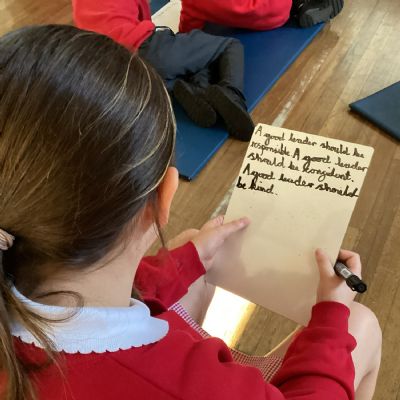 A good leader should be
responsible. A good leader
should be congident.
A good leader should
be kind.